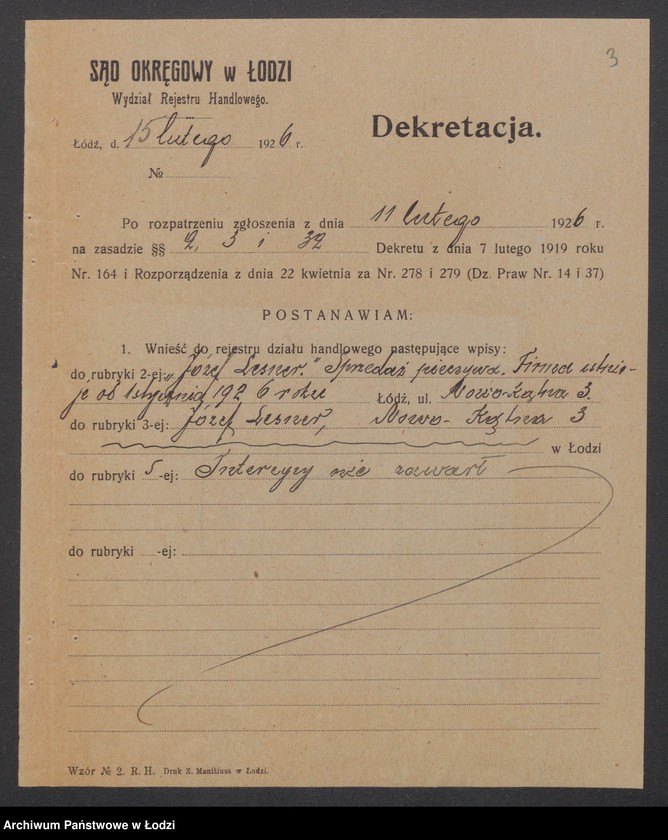 3
SĄD OKRĘGOWY w ŁODZI
Wydział Rejestru Handlowego.
Dekretacja.
Łódź, d. 15 lutego 1926 r.
№
Po rozpatrzeniu zgłoszenia z dnia 11 lutego 1926 r.
na zasadzie §§ 2, 3 i 32 Dekretu z dnia 7 lutego 1919 roku
Nr. 164 i Rozporządzenia z dnia 22 kwietnia za Nr. 278 i 279 (Dz. Praw Nr. 14 i 37)
POSTANAWIAM:
1. Wnieść do rejestru działu handlowego następujące wpisy:
do rubryki 2-ej: „Józef Lesner." Sprzedaż pieczywa. Firma istnie-
je od 1 stycznia 1926 roku Łódź, ul. Nowo-Kątna 3.
do rubryki 3-ej: Józef Lesner, Nowo-Kątna 3
w Łodzi
do rubryki 5-ej: Intercyzy nie zawarł
do rubryki -ej:
Wzór № 2. R. H. Druk Z. Manitiusa w Łodzi.
Archiwum Państwowe w Łodzi